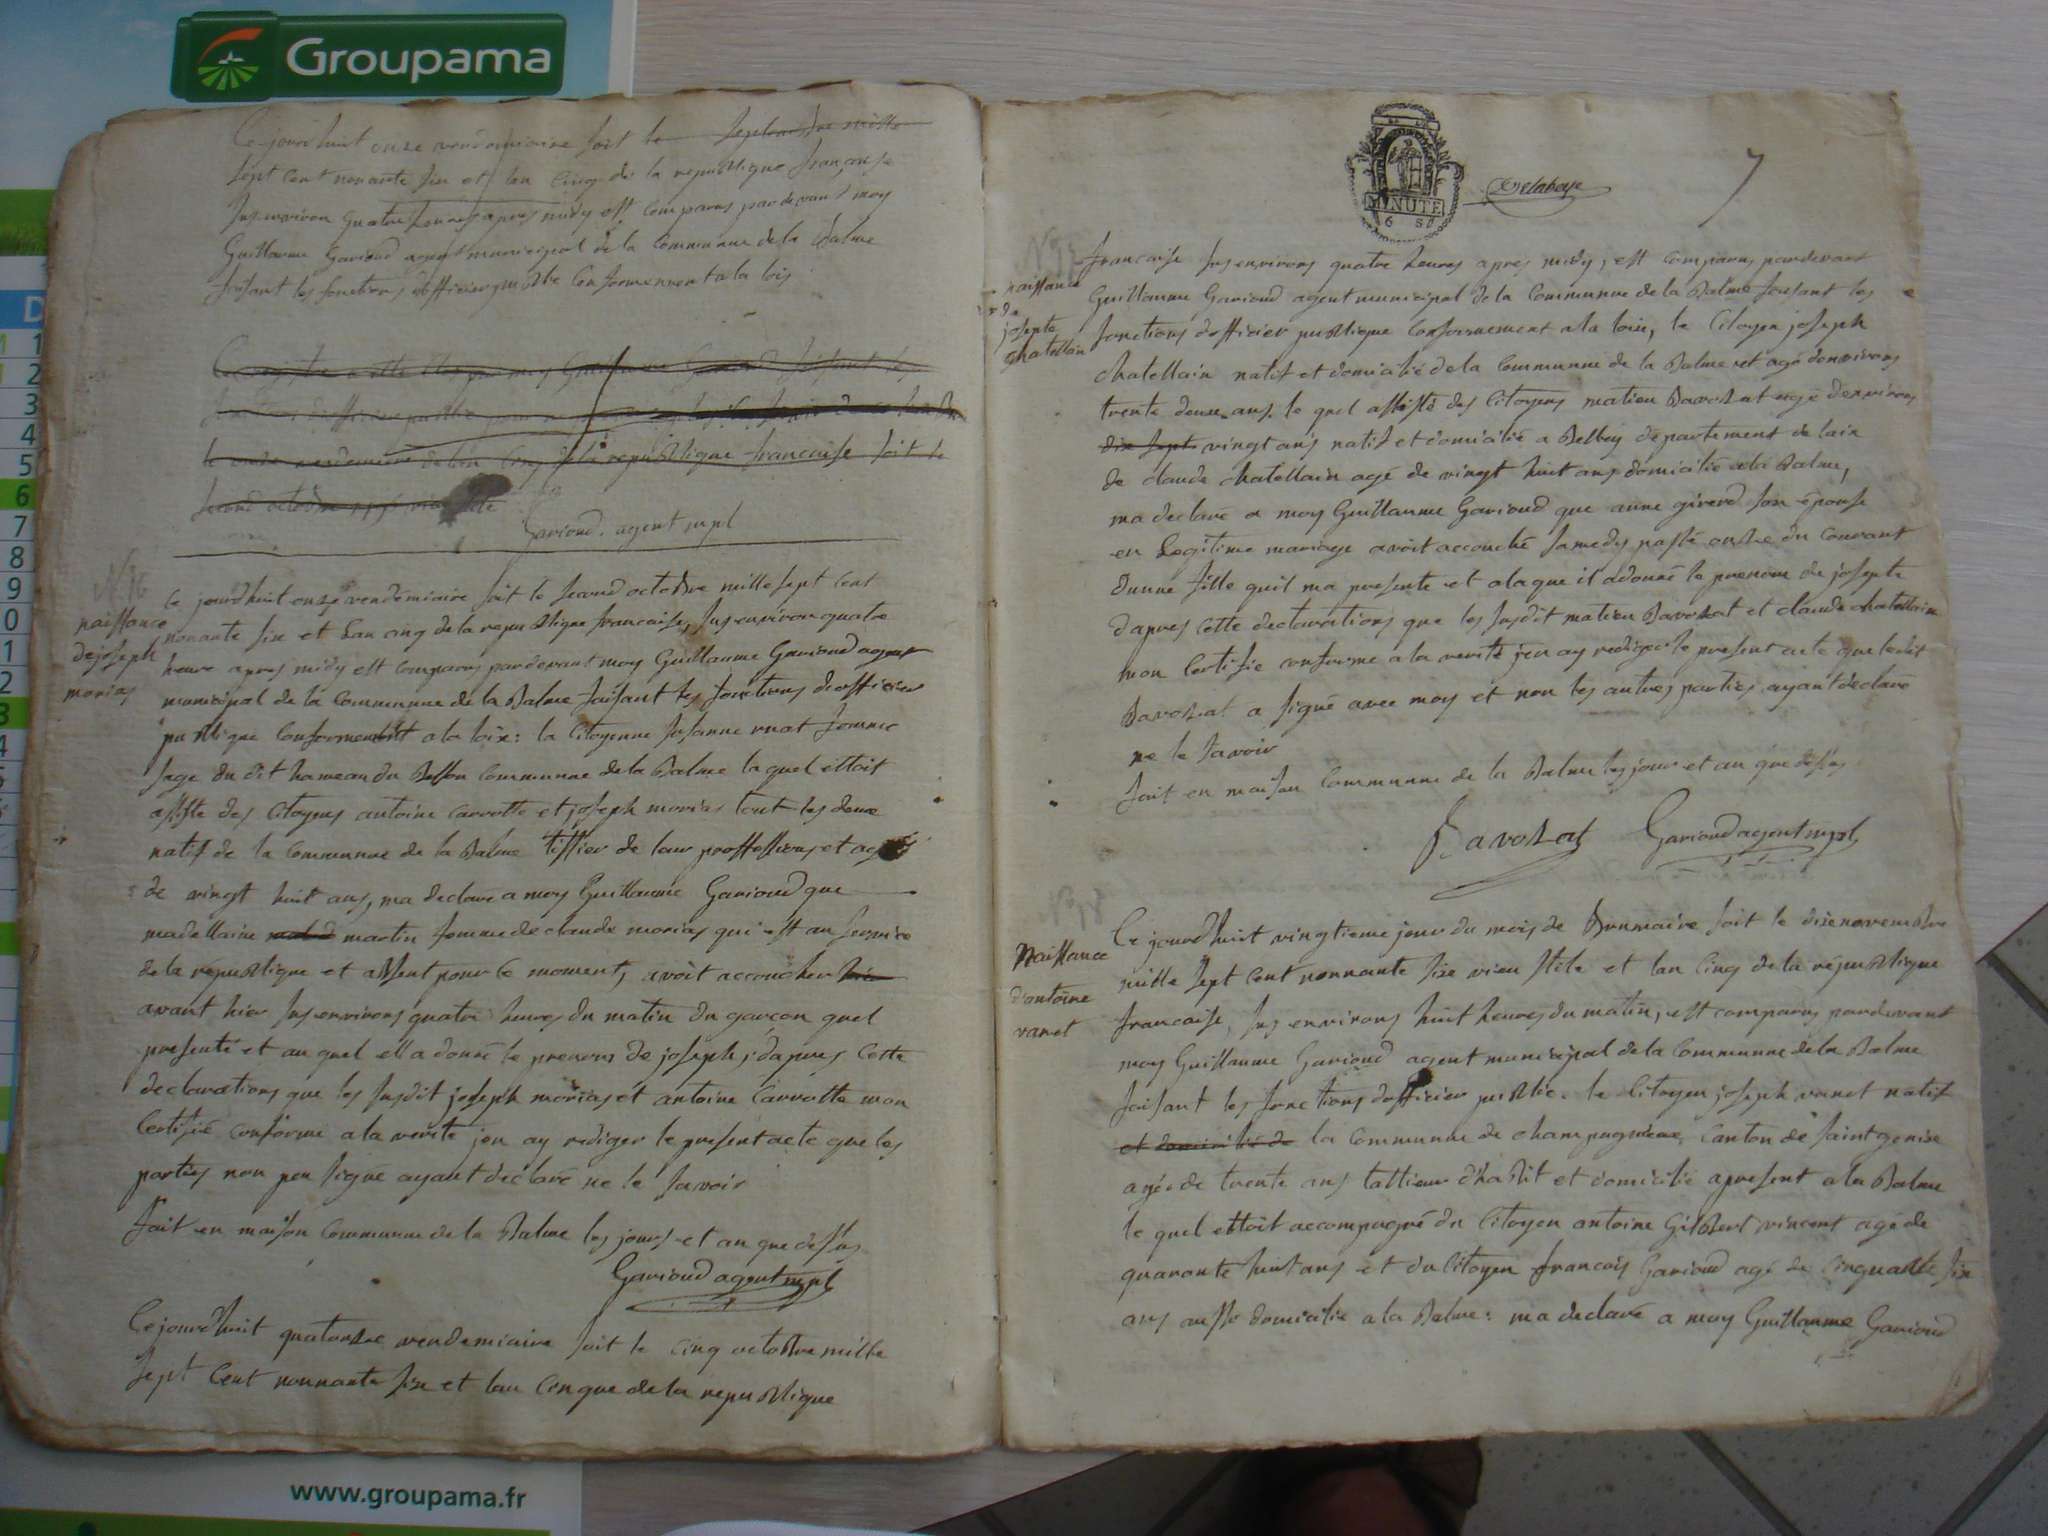 Groupama
Ce jourd'huit onze vendemiaire soit le septembre mille
sept cent nonante six et lan cinq de la republique françoise
sus environ quatre heures apres midy est comparus pardevant moy
Guillaume Gavioud agent municipal de la Commune de la Balme
faisant les fonctions dofficier publie Conformement a la lois
le onze vendemiere de lan cinq de la republique francaise soit le
second octobre
Gavioud. agent mpl
N 16
naissance
de joseph
morias
Ce jourdhuit onze vendémiaire soit le second octobre mille sept cent
nonante six et Lan cinq de la republique francaise, sus environ quatre
heure apres midy est comparus pardevant moy Guillaume Gavioud agent
municipal de la Commune de la Balme faisant les fonctions dofficier
publique Conformement a la loix: la Citoyenne susanne ruat femme
sage du dit hameau du Communne de la Balme la quel ettoit
assiste des Citoyens antoine Carrotte et joseph morias tout les deux
natif de la Commune de la Balme tissier de leur proffessions et agés
de vingt huit ans, ma declare a moy Guillaume Gavioud que
madellaine martin femme de claude morias qui est au service
de la république et absent pour le moment, avoit accoucher hie
avant hier sus environs quatre heures du matin du garçon quel
presente et au quel ell a donné le prenom de joseph; dapres Cette
declarations que les susdit joseph morias et antoine Carrotte mon
Certifié conforme a la verite jen ay rediger le present acte que les
parties non peu signé ayant declaré ne le savoir
fait en maison Communne de la Balme les jours et an que dessus
Gavioud agent mpl
Ce jourd'huit quatorze vendemiaire soit le cinq octobre mille
sept Cent nonnante six et lan Cinque de la republique
MINUTE
7
N 17
naissance
de
josepte
chatellain
francaise sus environs quatre heures apres midy, est comparus pardevant
Guillaume Gavioud agent municipal de la Communne de la Balme faisant les
fonctions dofficier publique Conformement a la loix, le Citoyen joseph
chatellain natif et domicilié de la Communne de la Balme et agé denvirons
trente deux ans. le quel assisté des Citoyens matieu Bavozat agé denvirons
dix sept vingt ans natif et domicilié a Belley département de lain
de claude chatellain agé de vingt huit ans domicilié a la Balme,
ma declaré a moy Guillaume Gavioud que anne girerd son épouse
en Legitime mariage avoit accouché samedy passé onze du Courant
dunne fille quil ma presente et a laque il adonné le prenom de josepte
dapres Cette declarations que les susdit matieu Bavozat et claude chatellain
mon Certifie conforme a la verité jen ay rediger le present acte que ledit
Bavozat a signé avec moy et non les autres parties ayant declaré
ne le savoir
fait en maison Communne de la Balme les jour et an que dessus
Bavozat Gavioud agent mpl
N 18
Naissance
d'antoine
vanet
Ce jourd'huit vingtieme jour du mois de Brumaire soit le dixe novembre
mille sept Cent nonnante sixe vieu stile et lan Cinq de la république
francaise, sus environs huit heures du matin, est comparus pardevant
moy Guillaume Gavioud agent municipal de la Communne de la Balme
faisant les fonctions dofficier publie. le Citoyen joseph vanet natif
et domicilié de la Communne de champagneux Canton de saint genise
agée de trente ans tallieur d'habit et domicilié apresent a la Balme
le quel ettoit accompagné du Citoyen antoine Gilbert vincent agé de
quarante huit ans et du Citoyen francois Gavioud agé de Cinquante six
ans aussy domicilie a la Balme: ma declaré a moy Guillaume Gavioud
www.groupama.fr